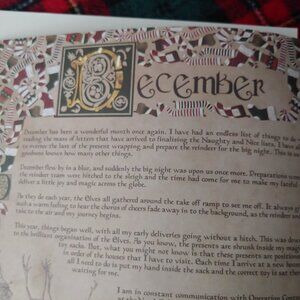 December
December has been a wonderful month once again. I have had an endless list of things to do
the tens of letters that have arrived to finalising the Naughty and Nice lists. I have
to oversee the last of the present wrapping and prepare the reindeer for the big night. This is
goodness knows how many other things.
December flew by in a blur, and suddenly the big night was upon us once more. Preparations were
the reindeer team were hitched to the sleigh and the time had come for me to make my
deliver a little joy and magic across the globe.
As they do each year, the Elves all gathered around the take off ramp to set me off. It always
with a warm feeling to hear the chorus of cheers fade away in to the background, as the reindeer
take to the air and my journey begins.
This year, things began well, with all my early deliveries going without a hitch. This was down
to the brilliant organisation of the Elves. As you know, the presents are shrunk inside my magic
toy sacks. But, what you might not know is that these presents are positioned
in order of the houses that I have to visit. Each time I arrive at a new house
all I need to do is put my hand inside the sack and the correct toy is
waiting for me.
I am in constant communication with Operation